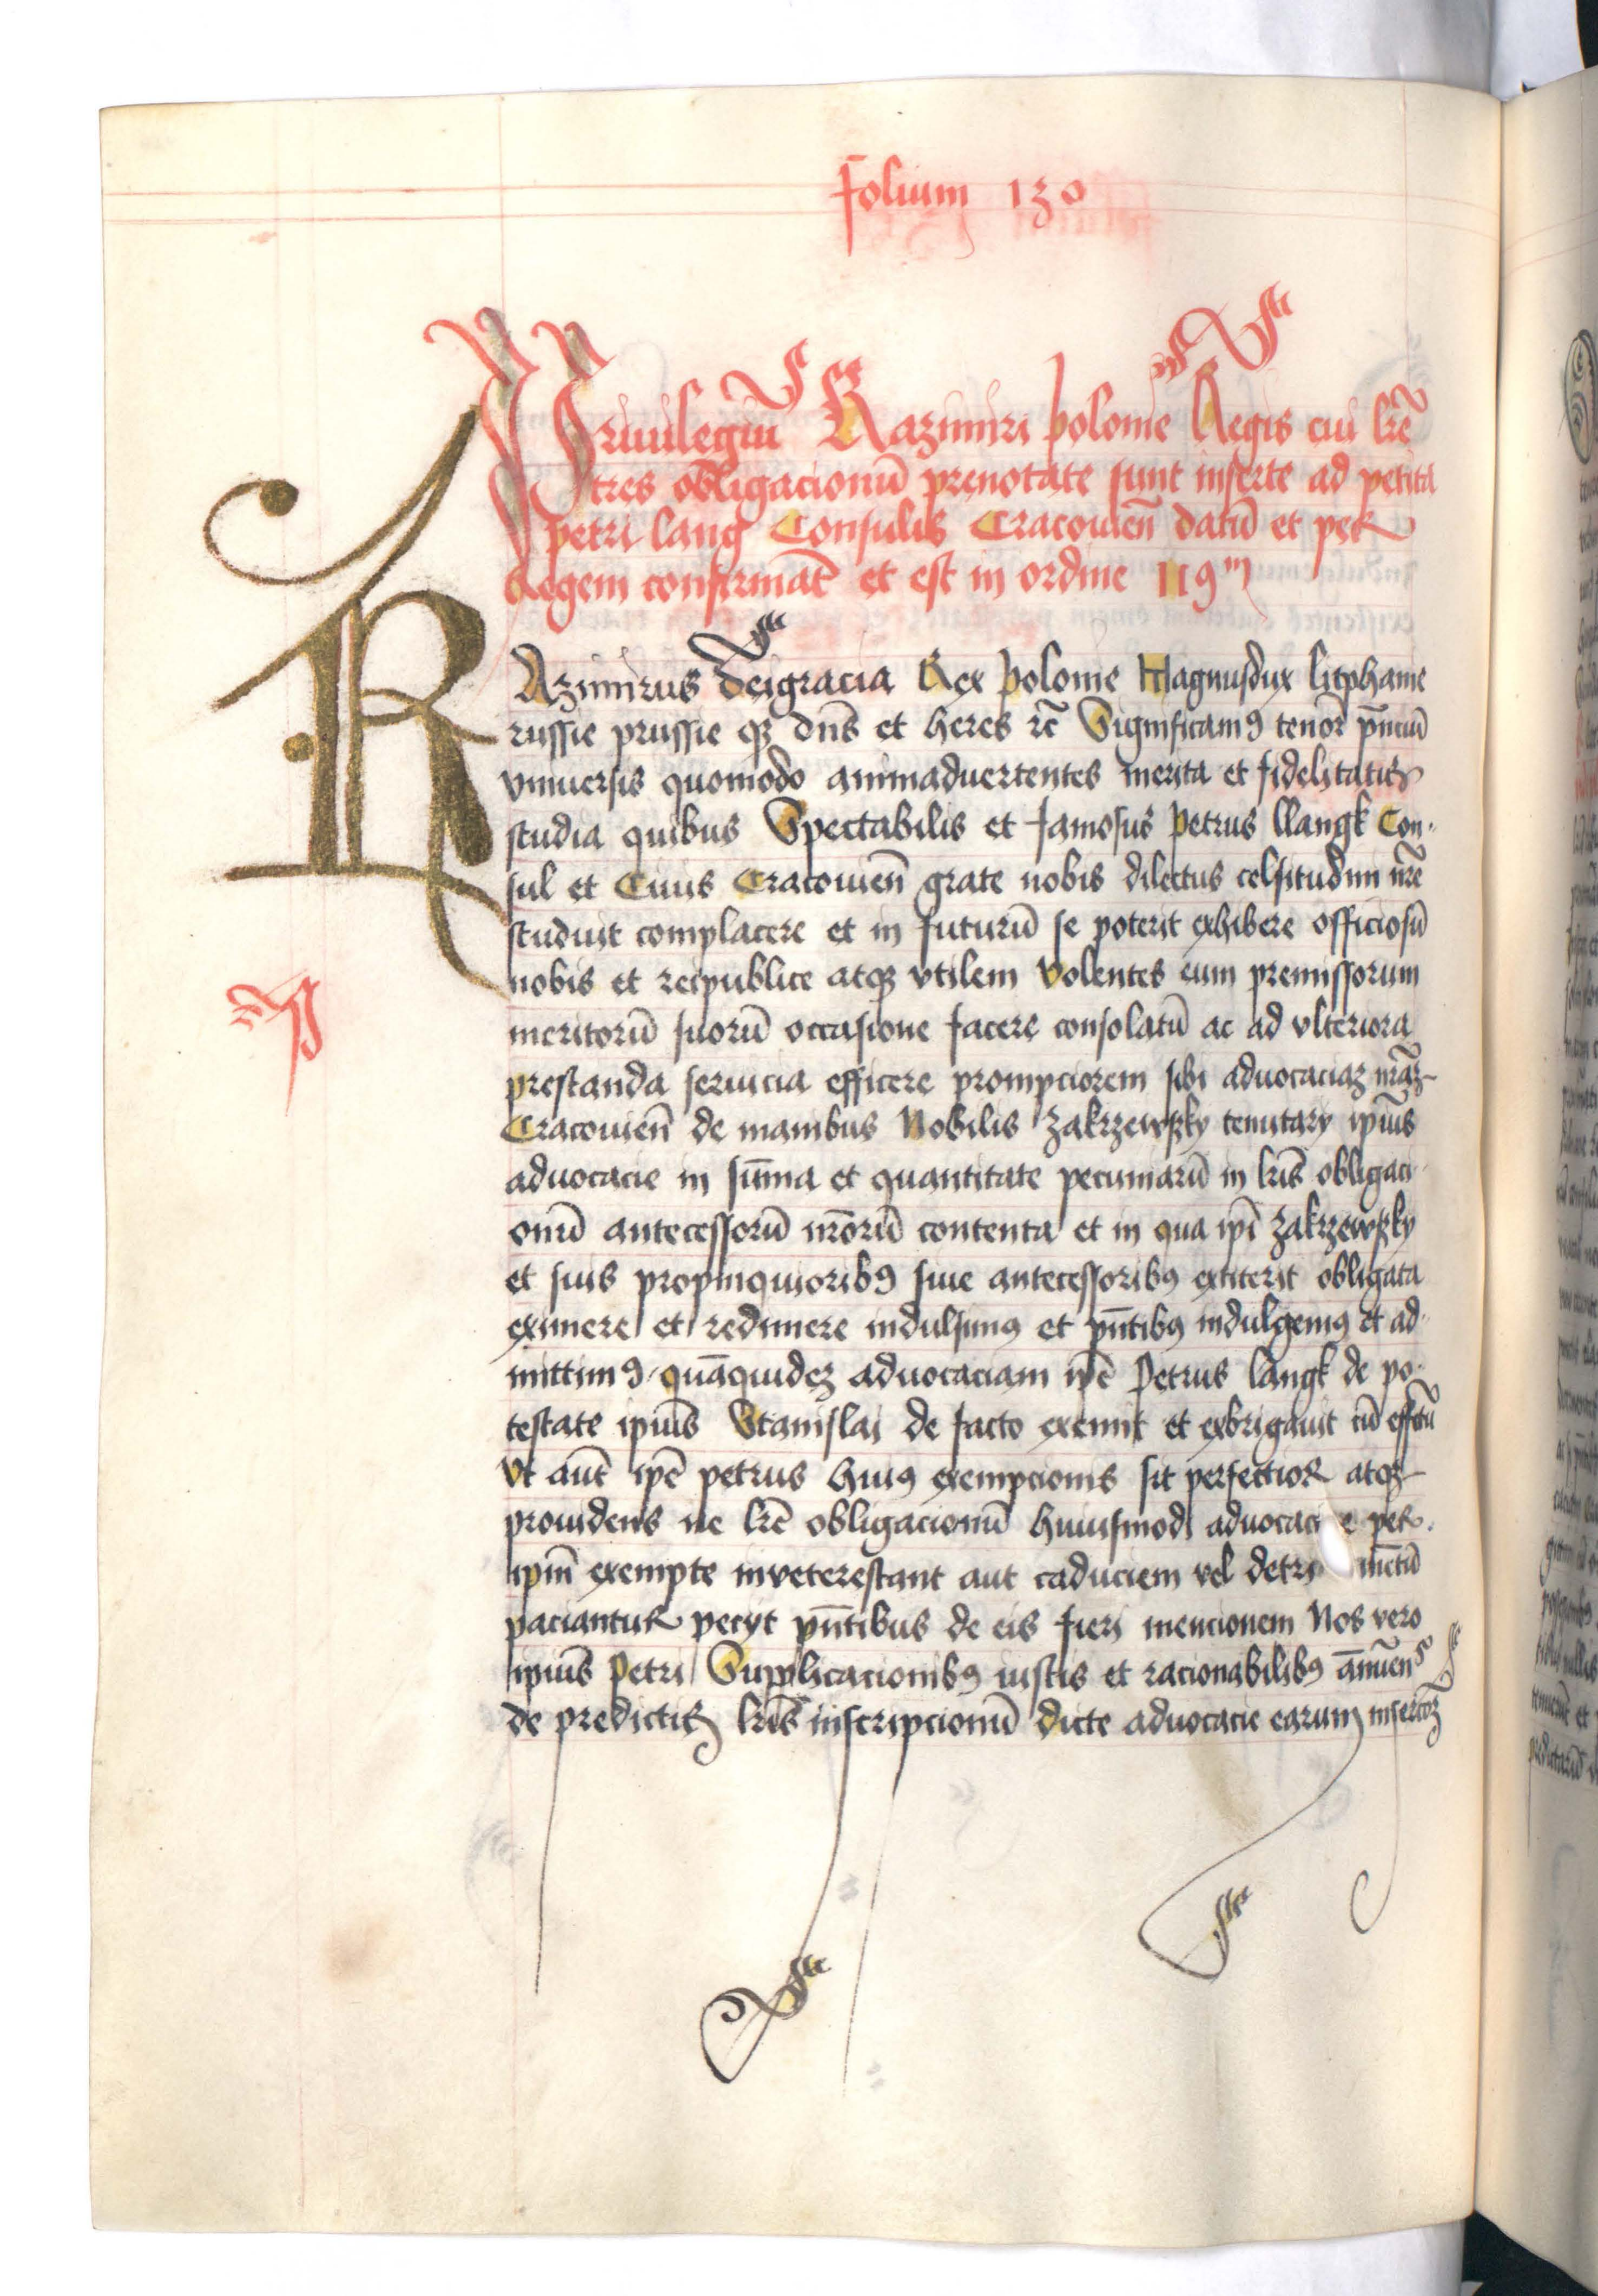 folium 130
Priuilegiū Kazimiri polonie Regis cui lr̄e
tres obligacionū prenotate sunt inserte ad petita
petri lang Consulis Cracouieñ datū et per
Regem confirmat̄ et est in ordine 119m
KAzimirus deigracia Rex polonie Magnusdux litphanie
russie prussie qꝫ dn̄s et heres rc̄ Significamꝰ tenor̄ pn̄ciū
vniuersis quomodo animaduertentes merita et fidelitatis
studia quibus Spectabilis et famosus petrus llangk Con-
sul et Ciuis Cracouieñ grate nobis dilectus celsitudini nr̄e
studuit complacere et in futurū se poterit exhibere officiosū
nobis et reipublice atqꝫ vtilem volentes eum premissorum
meritorū suorū occasione facere consolatū ac ad vlteriora
prestanda seruicia efficere prompciorem sibi aduocaciaꝫ nr̄aꝫ
Cracouieñ de manibus Nobilis Zakrzewsky tenutary ipīus
aduocacie in sūma et quantitate pecuniarū in lr̄is obligaci
onū antecessorū nr̄orū contenta et in qua ipī Zakrzewsky
et suis propinquioribꝰ siue antecessoribꝰ extiterit obligata
eximere et redimere indulsimꝰ et pn̄tibꝰ indulgemꝰ et ad-
mittimꝰ quāquideꝫ aduocaciam ipē Petrus langk de po-
testate ipīus Stanislai de facto exemit et exbrigauit cū effctū
Vt aut̄ ipē petrus huiꝰ exempcionis sit perfectior atqꝫ
prouidens ne lr̄e obligacionū huiusmodi aduocacie per
ipm̄ exempte inveterestant aut caduciem vel detrimētū
paciantur petyt pn̄tibus de eis fieri mencionem Nos vero
ipīus Petri Supplicacionibꝰ iustis et racionabilibꝰ ānuen̄
de predictis lr̄is inscripcionū dicte aduocacie earum insercōꝫ